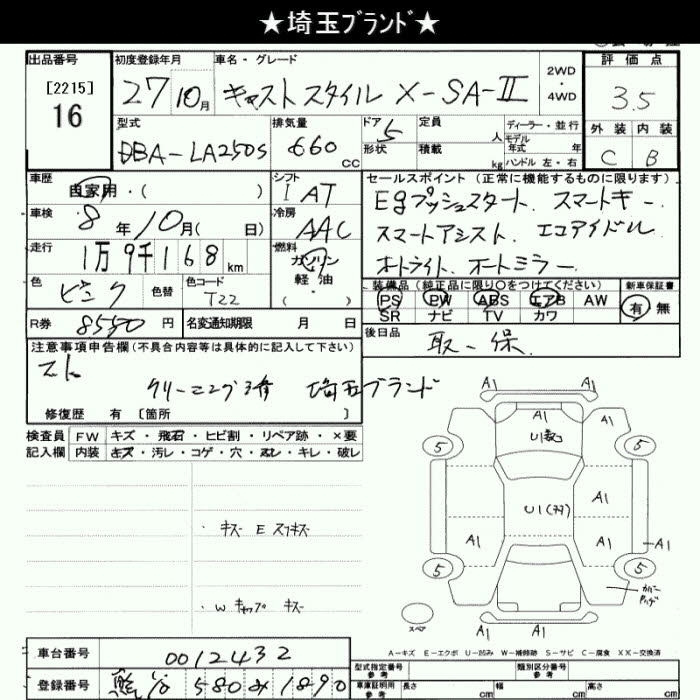 ★埼玉ﾌﾞﾗﾝﾄﾞ★
出品番号 初度登録年月 車名・グレード 2WD・4WD 評価点
[2215]
16 27 10月 キャスト スタイル X-SA-Ⅱ 3.5
型式 排気量 ドア 5 定員 人 ディーラー・並行
DBA-LA250S 660 cc 形状 積載 kg モデル年式 年 ハンドル 左・右 外装 内装
C B
車歴 シフト セールスポイント (正常に機能するものに限ります)
自家用・( ) I AT Egプッシュスタート、スマートキー、
車検 8年 10月( 日) 冷房 AAC スマートアシスト、エコアイドル
走行 1万9千168km 燃料 ガソリン 軽油 ( ) オートライト、オートミラー
色 色替 色コード 装備品 (純正品に限り○をつけてください) 新車保証書
ピンク T22 PS PW ABS エアB AW 有 無
SR ナビ TV カワ
R券 8590円 名変通知期限 月 日 後日品
取一保、
注意事項申告欄 (不具合内容等は具体的に記入して下さい)
クリーニング済 埼玉ブランド
修復歴 有 [箇所 ]
検査員 FW キズ・飛石・ヒビ割・リペア跡・×要
記入欄 内装 キズ・汚レ・コゲ・穴・スレ・キレ・破レ
・キズ E スリキズ
・W キャップ キズ
A1 A1
A1 A1
U1
5 5
A1
U1
A1 A1 A1
5 5
スペア A1 A1
A－キズ E－エクボ U－凹み W－補修跡 S－サビ C－腐食 XX－交換済
車台番号 0012432
登録番号 580 み 1890
型式指定番号 参考 類別区分番号 参考
車庫証明用 参考 長さ cm 幅 cm 高さ cm